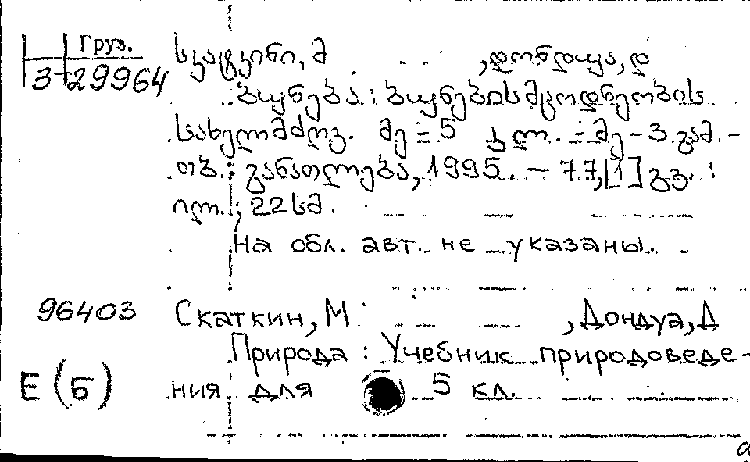 Груз.
3-29964
სკატკინი, მ. , დონდუა, დ
ბუნება : ბუნებისმცოდნეობის
სახელმძღვ. მე-5 კლ. - მე-3 გამ. -
თბ. : განათლება, 1995. - 77, [1] გვ. :
ილ. ; 22 სმ.
На обл. авт. не указаны.
96403
Скаткин, М , Дондуа, Д
Природа : Учебник природоведе-
ния для 5 кл.
Е (Б)